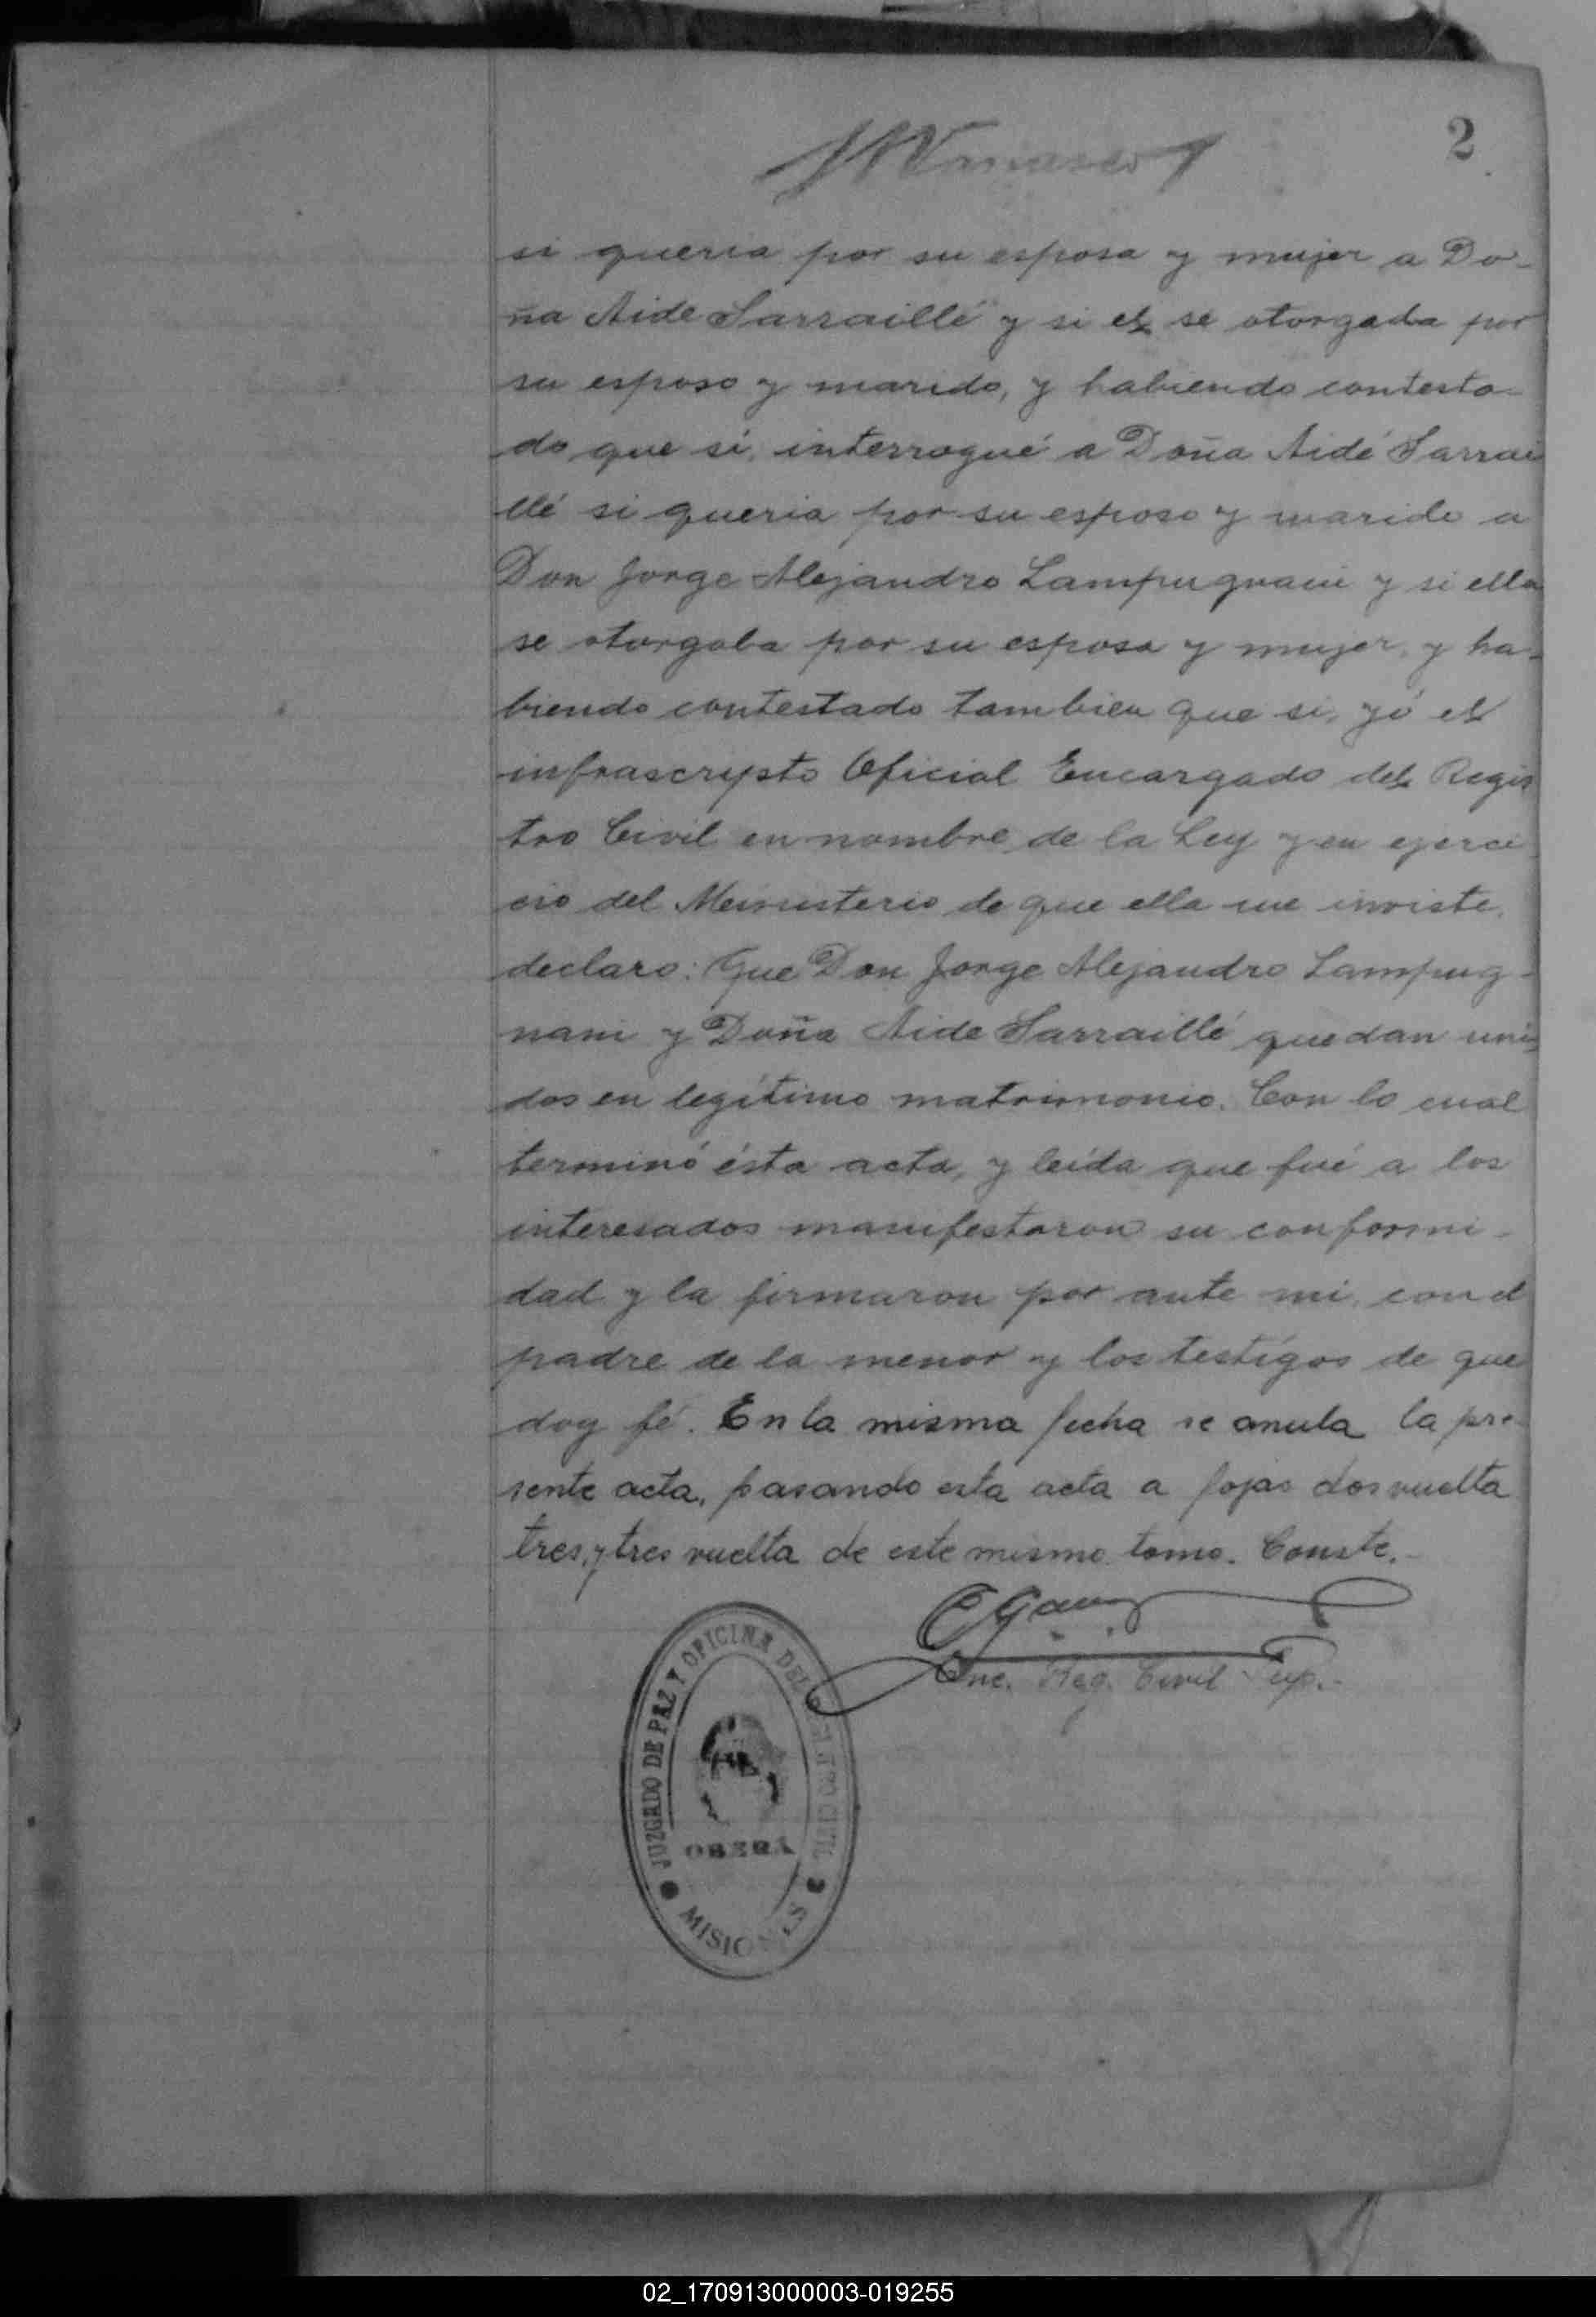 2
si queria por su esposa y mujer a Do-
ña Aide Sarraillé y si el se otorgaba por
su esposo y marido, y habiendo contesta-
do que sí, interrogué a Doña Aidé Sarrai
llé si queria por su esposo y marido a
Don Jorge Alejandro Lampugnani y si ella
se otorgaba por su esposa y mujer, y ha-
biendo contestado tambien que si, yó el
infrascripto Oficial Encargado del Regis
tro Civil en nombre de la Ley y en ejerci
cio del Meinisterio de que ella me inviste,
declaro: Que Don Jorge Alejandro Lampug-
nani y Doña Aide Sarraillé quedan uni
dos en legítimo matrimonio. Con lo cual
terminó ésta acta, y leída que fué a los
interesados manifestaron su conformi-
dad y la firmaron por ante mi, con el
padre de la menor y los testígos de que
doy fé. En la misma fecha se anula la pre-
sente acta, pasando esta acta a fojas dos vuelta
tres, y tres vuelta de este mismo tomo. Conste.-
Enc. Reg. Civil Sup.-
JUZGADO DE PAZ Y OFICINA DEL REGISTRO CIVIL
OBERÁ
MISIONES
02_170913000003-019255